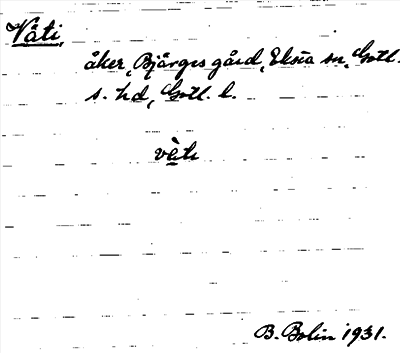 Väti,
åker, Bjärges gård, Eksta sn, Gotl.
s. hd, Gotl. l.
vèti
B. Bolin 1931.